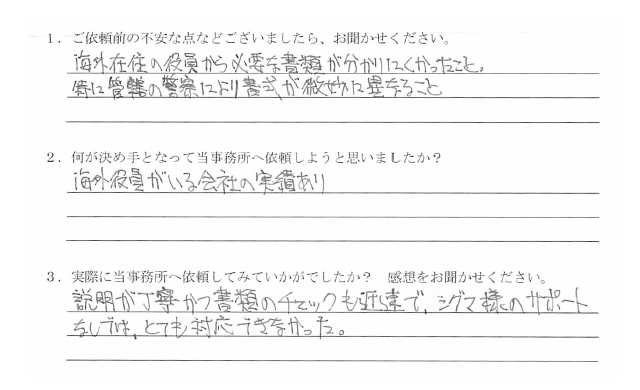 1．ご依頼前の不安な点などございましたら、お聞かせください。
海外在住の役員から必要な書類が分かりにくかったこと。
特に管轄の警察により書式が微妙に異なること
2．何が決め手となって当事務所へ依頼しようと思いましたか？
海外役員がいる会社の実績あり
3．実際に当事務所へ依頼してみていかがでしたか？　感想をお聞かせください。
説明が丁寧かつ書類のチェックも迅速で、シグマ様のサポート
なしでは、とても対応できなかった。